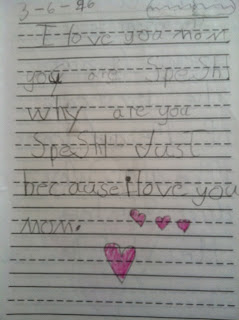 3-6-96
I love you mom
you are SpeShl
why are you
SpeShl Just
because i love you
mom.